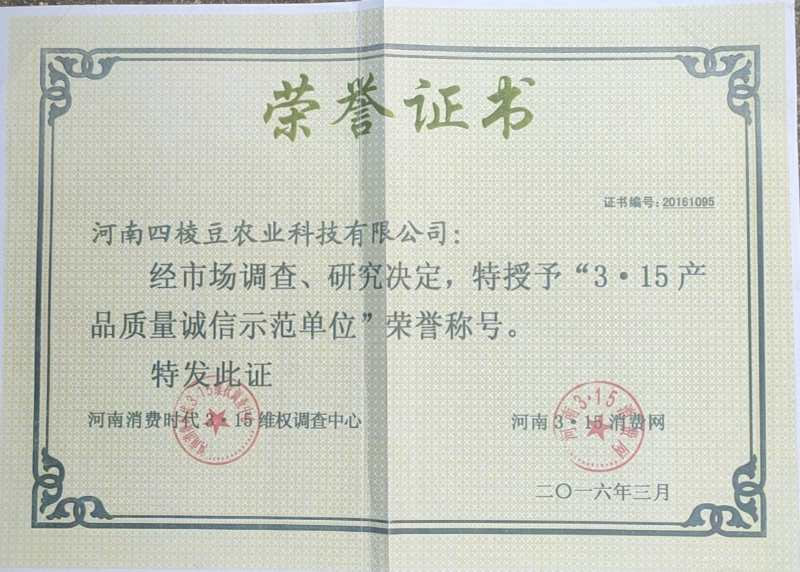 荣誉证书
证书编号：20161095
河南四棱豆农业科技有限公司：
经市场调查、研究决定，特授予“3·15产
品质量诚信示范单位”荣誉称号。
特发此证
河南消费时代3·15维权调查中心
河南3·15消费网
河南3·15消费网
二〇一六年三月